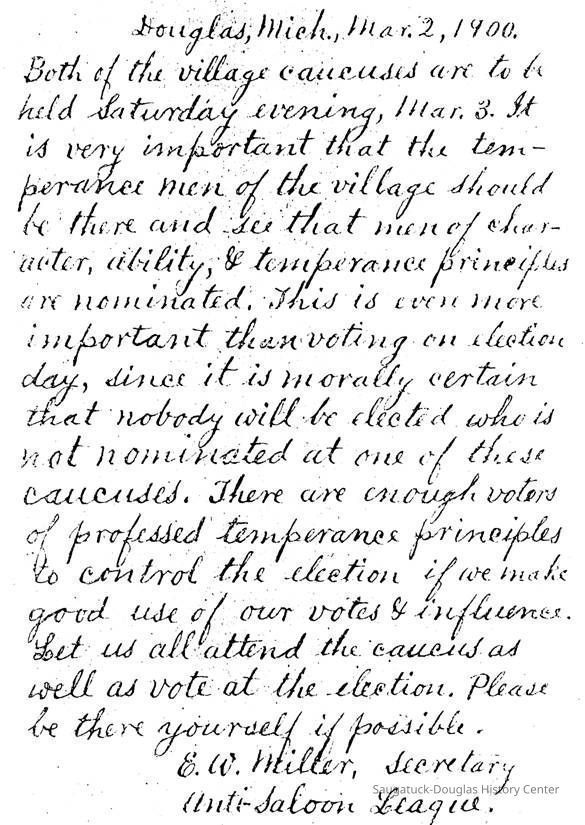 Douglas, Mich., Mar. 2, 1900.
Both of the village caucuses are to be
held Saturday evening, Mar. 3. It
is very important that the tem-
perance men of the village should
be there and see that men of char-
acter, ability, & temperance principles
are nominated. This is even more
important than voting on election
day, since it is morally certain
that nobody will be elected who is
not nominated at one of these
caucuses. There are enough voters
of professed temperance principles
to control the election if we make
good use of our votes & influence.
Let us all attend the caucus as
well as vote at the election. Please
be there yourself if possible.
E. W. Miller, Secretary
Saugatuck-Douglas History Center
Anti-Saloon League.